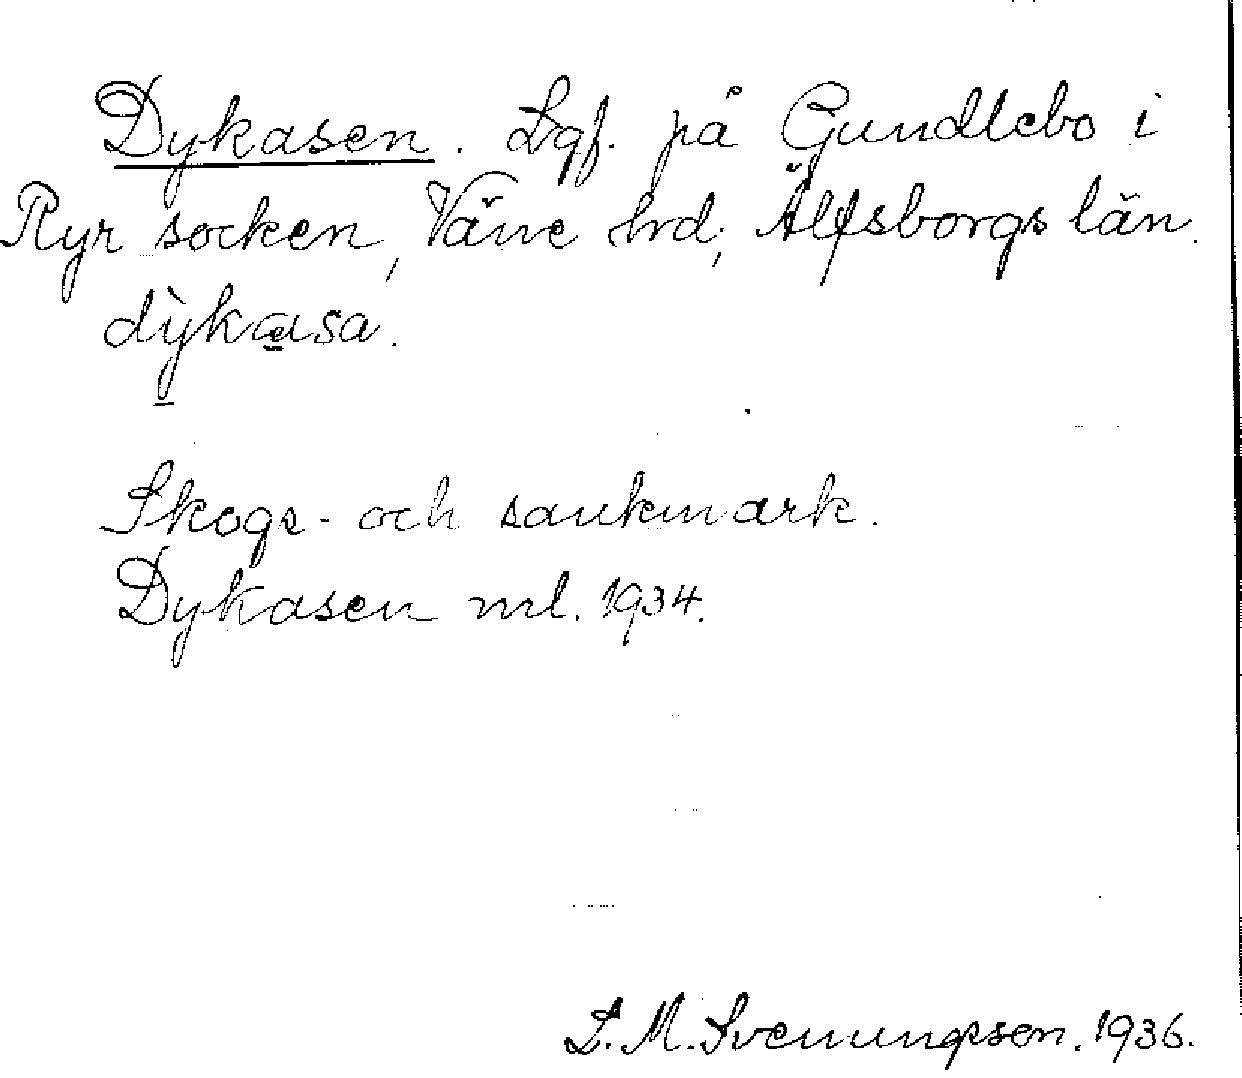 Dykasen. Lgf. på Gundlebo i
Ryr socken, Väne hrd, Älfsborgs län.
dỳkasa.
Skogs- och sankmark.
Dykasen ml. 1934.
L. M. Svenungsson. 1936.